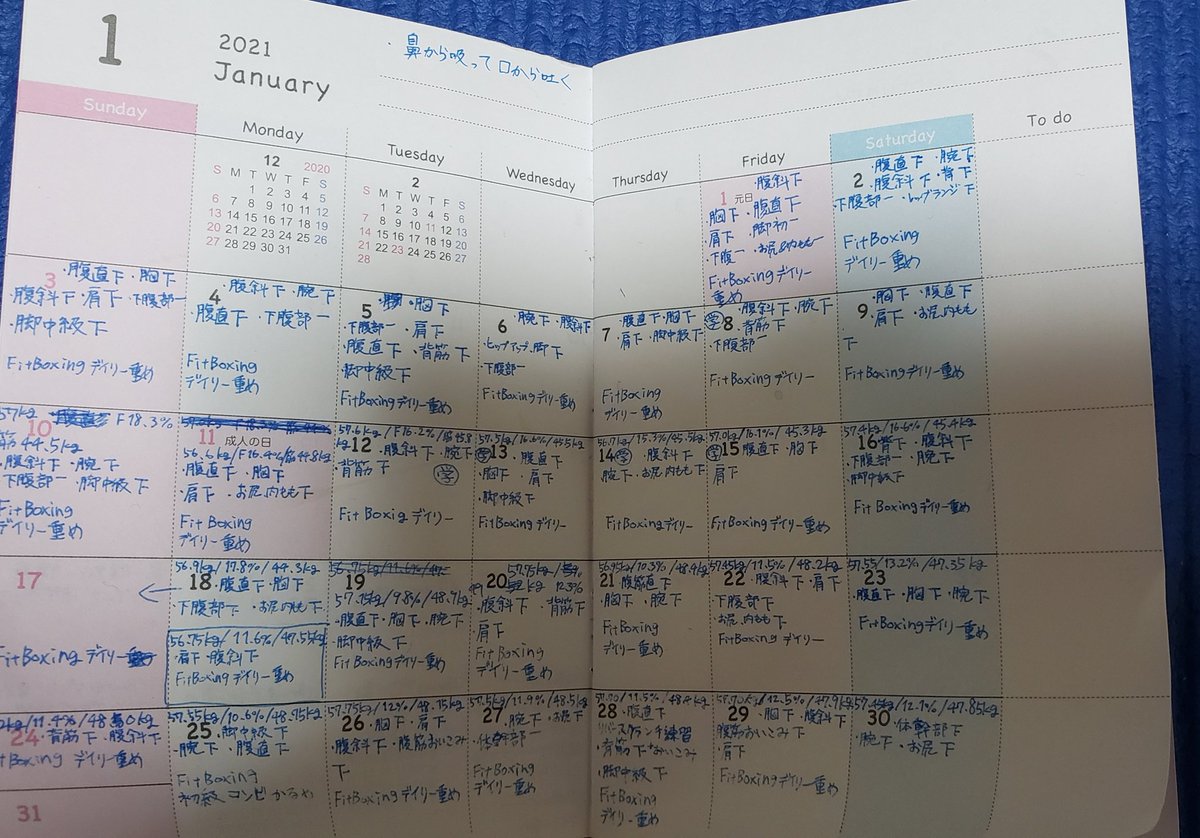 1
2021
January
・鼻から吸って口から吐く
Sunday
Monday
Tuesday
Wednesday
Thursday
Friday
Saturday
To do
12 2020
S M T W T F S
1 2 3 4 5
6 7 8 9 10 11 12
13 14 15 16 17 18 19
20 21 22 23 24 25 26
27 28 29 30 31
2
S M T W T F S
1 2 3 4 5 6
7 8 9 10 11 12 13
14 15 16 17 18 19 20
21 22 23 24 25 26 27
28
1 元日
・腹斜下
胸下 ・腹直下
肩下 ・脚初一
下腹一 ・お尻内もも一
FitBoxing デイリー
重め
2
・腹直下 ・腕下
・腹斜下 ・背下
下腹部一 ・ヒップランジ下
FitBoxing
デイリー重め
3
・腹直下 ・胸下
腹斜下 ・肩下 ・下腹部一
・脚中級下
FitBoxing デイリー重め
4
・腹斜下 ・腕下
腹直下 ・下腹部一
FitBoxing
デイリー重め
5
・胸下
下腹部一 ・肩下
・腹直下 ・背筋下
脚中級下
FitBoxing デイリー重め
6
・腕下 ・腹斜下
・ヒップアップ脚下
下腹部一
FitBoxing デイリー重め
7
・腹直下 ・胸下
・肩下 ・脚中級下
FitBoxing
デイリー重め
学 8
・腹斜下 ・腕下
・背筋下
下腹部一
FitBoxing デイリー
9
・胸下 ・腹直下
・肩下 ・お尻内もも
下
FitBoxing デイリー重め
10
57kg F18.3%
筋44.5kg
・腹斜下 ・腕下
下腹部一 ・脚中級下
FitBoxing
デイリー重め
11 成人の日
56.6kg/F16.4%/筋44.8kg
・腹直下 ・胸下
・肩下 ・お尻内もも下
FitBoxing
デイリー重め
57.6kg/F16.2%/筋45.8kg
12 ・腹斜下 ・腕下
背筋下
学
FitBoxig デイリー
57.5kg/16.6%/45.5kg
学 13 ・腹直下
・胸下 ・肩下
・脚中級下
FitBoxing デイリー
56.7kg/15.3%/45.5kg
14 学 ・腹斜下
腕下 ・お尻内もも下
FitBoxing デイリー
57.0kg/16.1%/45.3kg
学 15 腹直下 ・胸下
肩下
FitBoxing デイリー重め
57.4kg/16.6%/45.4kg
16 背下 ・腹斜下
・下腹部一 ・腕下
・脚中級下
FitBoxing デイリー重め
17
FitBoxing デイリー
56.9kg/17.8%/44.3kg
18 ・腹直下 ・胸下
下腹部下 ・お尻内もも下
56.75kg/11.6%/47.55kg
・肩下 ・腹斜下
FitBoxing デイリー重め
19
57.15kg/9.8%/48.9kg
・腹直下 ・胸下 ・腕下
・脚中級下
FitBoxing デイリー重め
57.75kg
20 12.3%
・腹斜下 ・背筋下
・肩下
FitBoxing
デイリー重め
56.95kg/10.3%/48.4kg
21 腹筋直下
・胸下 ・腕下
FitBoxing
デイリー重め
57.45kg/11.5%/48.2kg
22 ・腹斜下 ・肩下
下腹部下
お尻内もも下
FitBoxing デイリー
57.55/13.2%/47.35kg
23
・腹直下 ・胸下 ・腕下
FitBoxing デイリー重め
11.4%/48.0kg
24 背筋下 ・腹斜下
FitBoxing デイリー重め
57.55kg/10.6%/48.75kg
25 ・脚中級下
腕下 ・腹直下
FitBoxing
初級コンビかるめ
57.75kg/12%/48.15kg
26 ・胸下 ・肩下
・腹斜下 ・腹筋おいこみ
下
FitBoxing デイリー重め
57.5kg/11.9%/48.5kg
27 ・腕下 ・お尻下
・体幹部一
FitBoxing
デイリー重め
57.70/11.5%/48.4kg
28 ・腹直下
リバースクランチ練習
・背筋下おいこみ
・脚中級下
FitBoxing
デイリー重め
57.70kg/12.5%/47.9kg
29 ・胸下 ・腹斜下
腹筋おいこみ下
肩下
FitBoxing デイリー重め
12.1%/47.85kg
30 ・体幹部下
腕下 ・お尻下
31